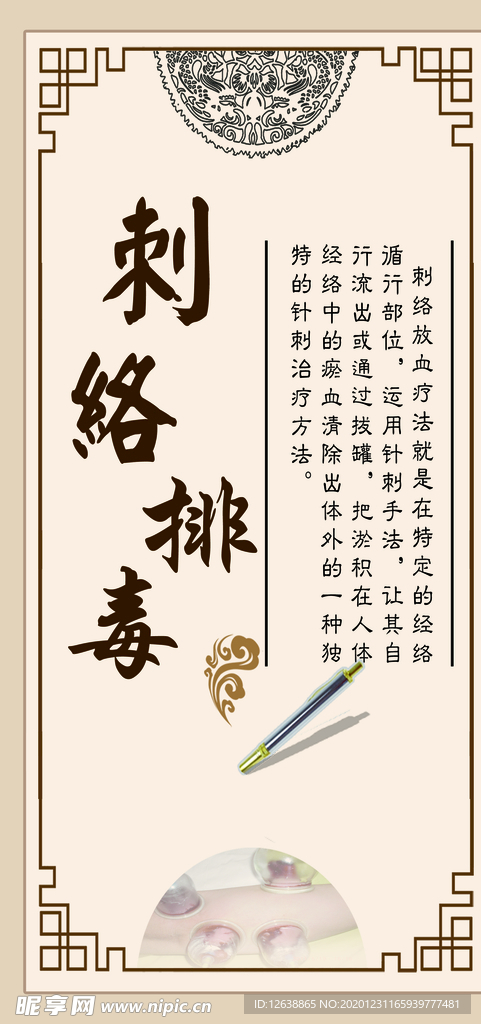 刺
络
排
毒
刺络放血疗法就是在特定的经络
循行部位，运用针刺手法，让其自
行流出或通过拔罐，把淤积在人体
经络中的瘀血清除出体外的一种独
特的针刺治疗方法。
昵享网 www.nipic.cn
ID:12638865 NO:20201231165939777481